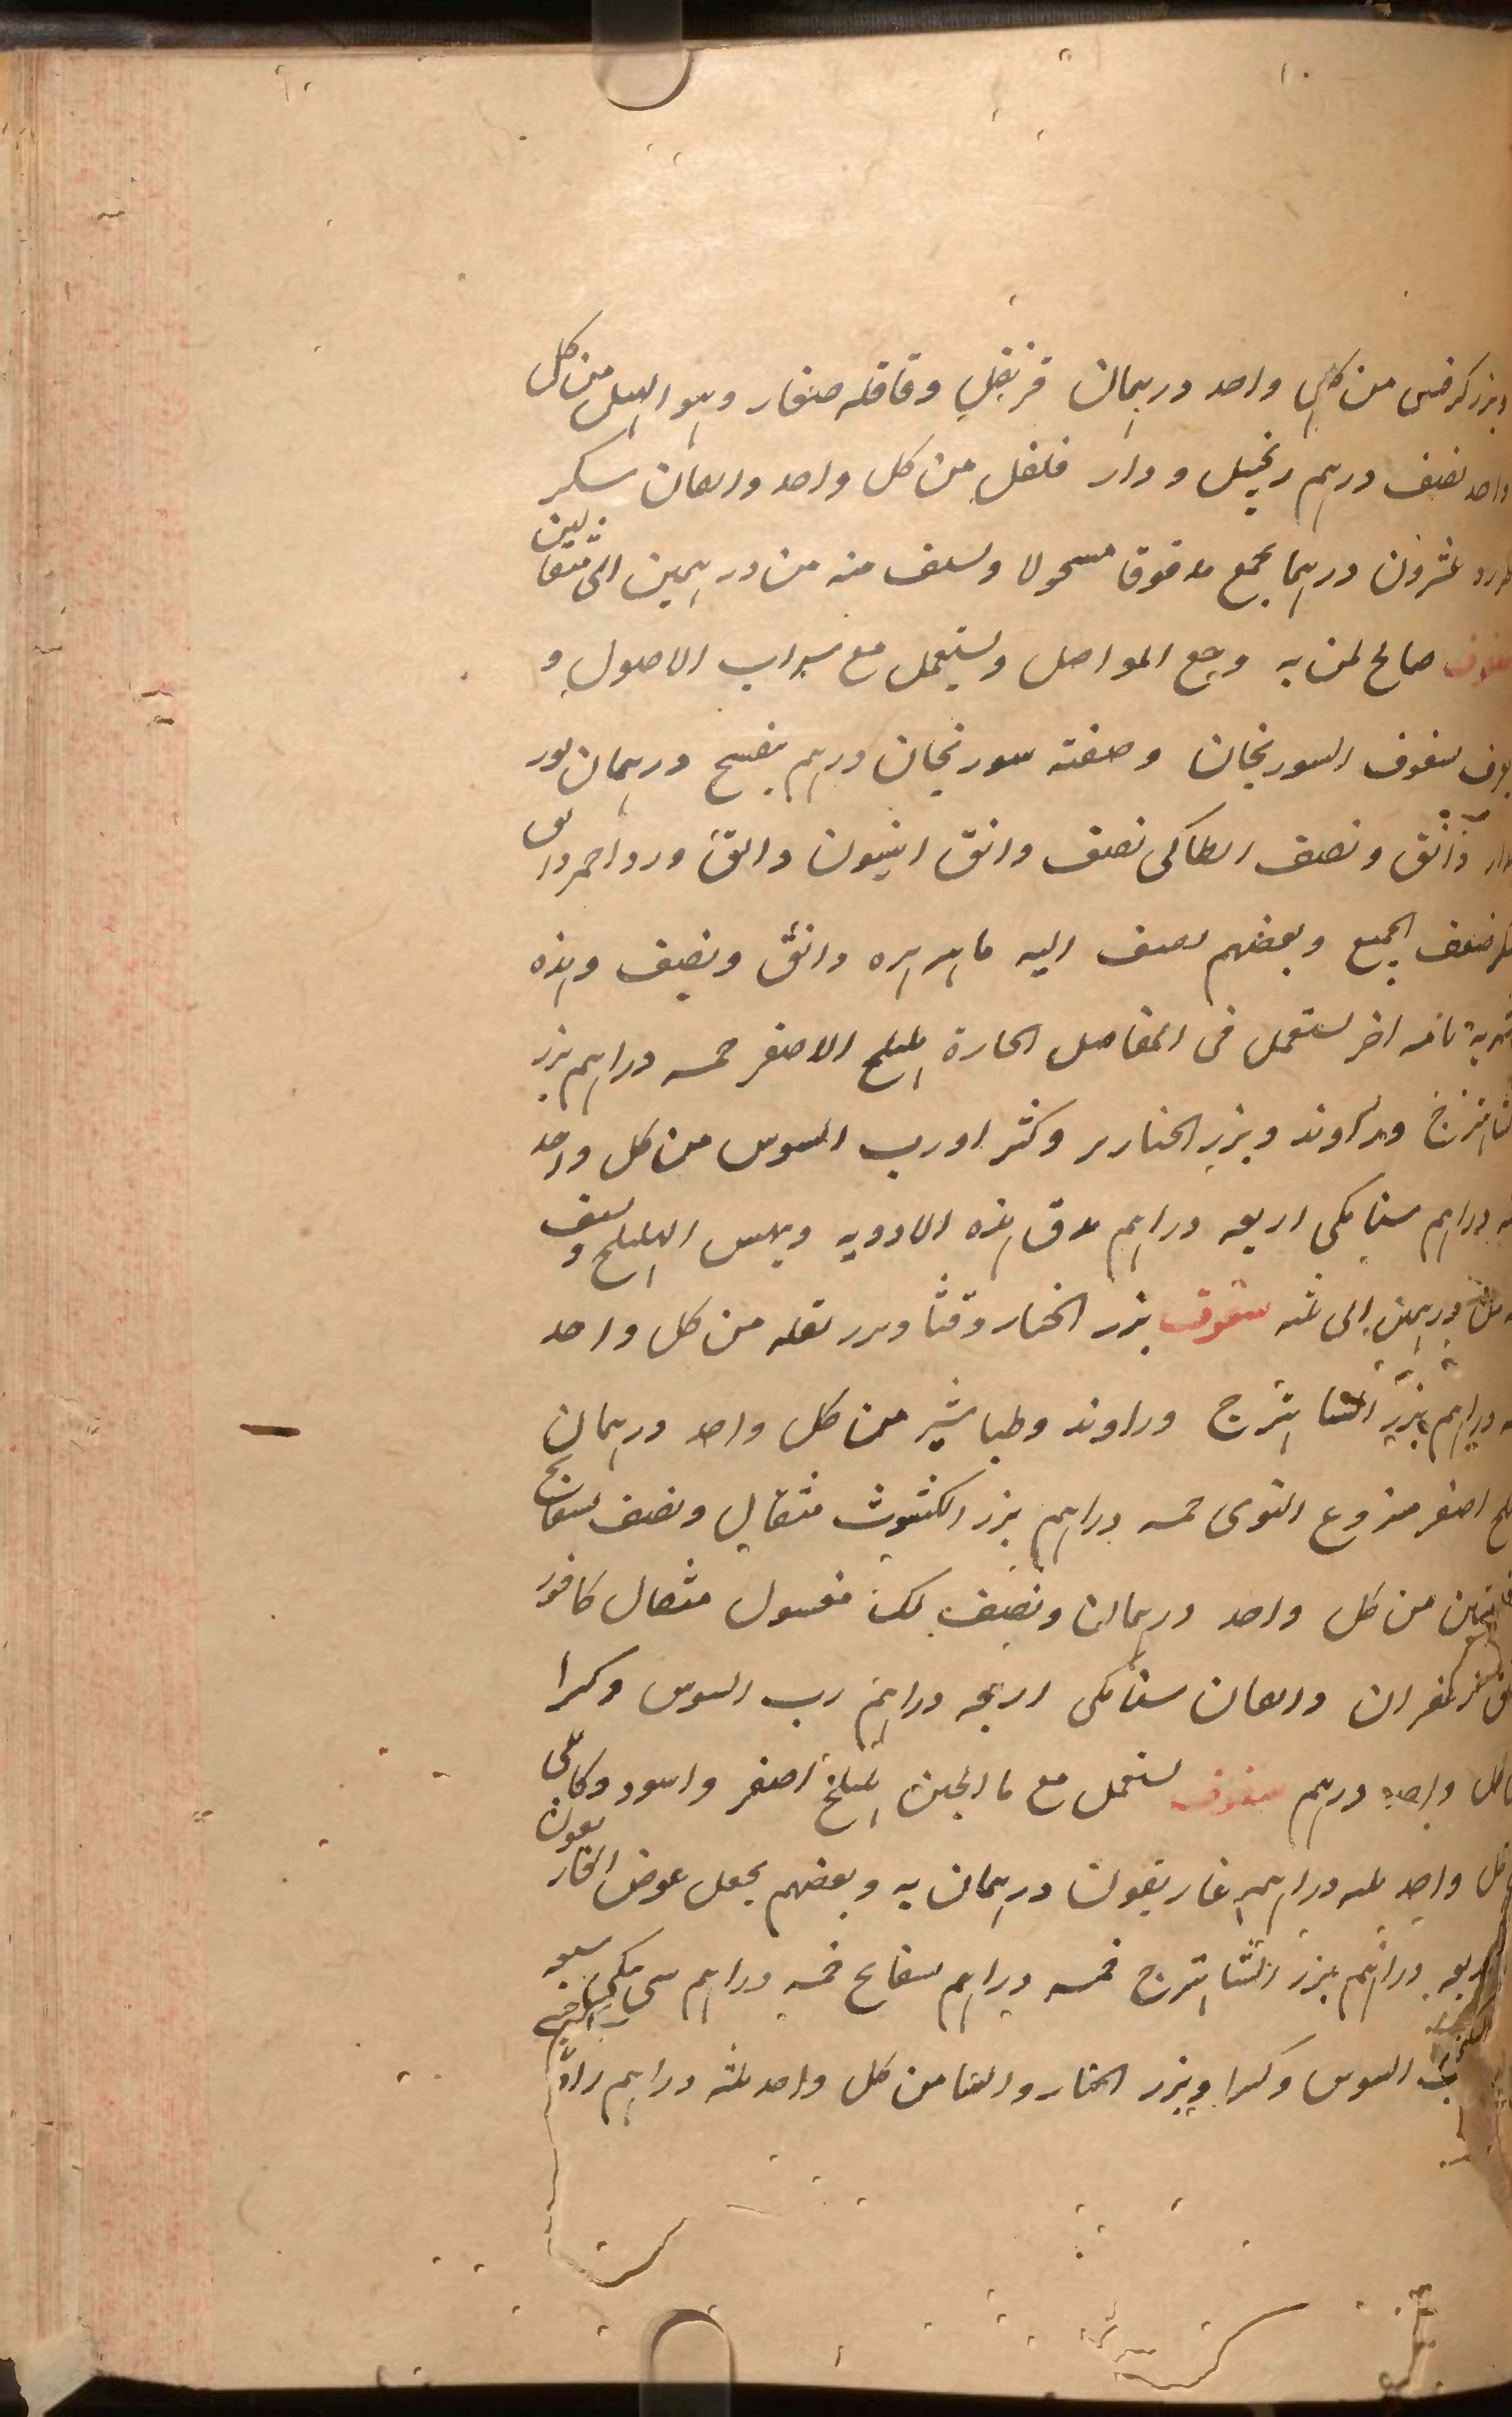 وبزر كرفس من كل واحد درهمان قرنفل وقاقله صغار وهو الهيل من كل
واحد نصف درهم زنجبيل ودار فلفل من كل واحد دانقان سكر
طبرزد عشرون درهما يجمع مدقوقا منخولا ويسف منه من درهمين الى مثقالين
سفوف صالح لمن به وجع المواصل ويستعمل مع شراب الاصول و
يعرف بسفوف السورنجان وصفته سورنجان درهم بنفسج درهمان
دانق ونصف انطاكى نصف دانق انيسون دانق ورد احمر دانق
سكر ضعف الجميع وبعضهم يضيف اليه ماهيزهره دانق ونصف وهذه
شربة تامه اخر يستعمل فى المفاصل الحارة هليلج الاصفر خمسه دراهم بزر
شاهترج وراوند وبزر الخيار وكثيرا ورب السوس من كل واحد
دراهم سنا مكى اربعه دراهم يدق هذه الادويه ويلبس الهليلج ويسف
منه من درهمين الى ثلثه سفوف بزر الخيار وقثا وبزر بقله من كل واحد
دراهم بزر الشاهترج وراوند وطباشير من كل واحد درهمان
هليلج اصفر منزوع النوى خمسه دراهم بزر الكشوث مثقال ونصف بسفايج
من كل واحد درهمان ونصف لك مغسول مثقال كافور
زعفران دانقان سنا مكى اربعه دراهم رب السوس وكثيرا
من كل واحد درهم سفوف يستعمل مع ما الجبن هليلج اصفر واسود وكابلى
من كل واحد ثلثه دراهم غاريقون درهمان به وبعضهم يجعل عوض الغاريقون
اربعه دراهم بزر الشاهترج خمسه دراهم بسفايج خمسه دراهم سنى مكى سبعه
رب السوس وكثيرا وبزر الخيار والقثا من كل واحد ثلثه دراهم